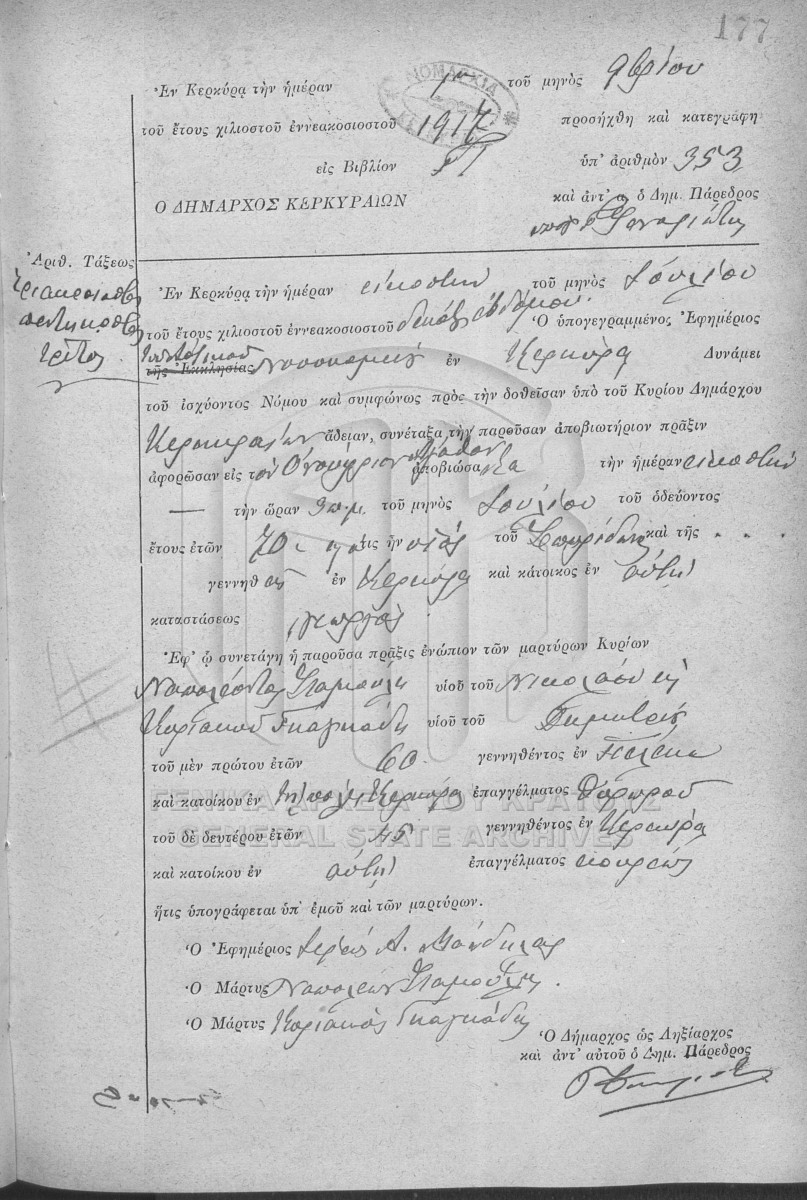 177
Ἐν Κερκύρᾳ τὴν ἡμέραν τοῦ μηνὸς 9βρίου
τοῦ ἔτους χιλιοστοῦ ἐννεακοσιοστοῦ 1917 προσήχθη καὶ κατεγράφη
εἰς Βιβλίον ὑπ' ἀριθμὸν 353
Ο ΔΗΜΑΡΧΟΣ ΚΕΡΚΥΡΑΙΩΝ καὶ ἀντ' α. ὁ Δημ. Πάρεδρος
ΝΟΜΑΡΧΙΑ
Ἀριθ. Τάξεως
τριακοσιοστὸς
πεντηκοστὸς
τρίτος
Ἐν Κερκύρᾳ τὴν ἡμέραν εἰκοστὴν τοῦ μηνὸς Ἰουλίου
τοῦ ἔτους χιλιοστοῦ ἐννεακοσιοστοῦ δεκάτου ἑβδόμου Ὁ ὑπογεγραμμένος Ἐφημέριος
τῆς Ἐκκλησίας ἐν Κερκύρᾳ Δυνάμει
τοῦ ἰσχύοντος Νόμου καὶ συμφώνως πρὸς τὴν δοθεῖσαν ὑπὸ τοῦ Κυρίου Δημάρχου
Κερκυραίων ἄδειαν, συνέταξα τὴν παροῦσαν ἀποβιωτήριον πρᾶξιν
ἀφορῶσαν εἰς τὸν Ὀνούφριον ἀποβιώσαντα τὴν ἡμέραν εἰκοστὴν
— τὴν ὥραν 3 π.μ. τοῦ μηνὸς Ἰουλίου τοῦ ὁδεύοντος
ἔτους ἐτῶν 70 τις ἦν υἱὸς τοῦ Σπυρίδωνος καὶ τῆς . . .
γεννηθεὶς ἐν Κερκύρᾳ καὶ κάτοικος ἐν αὐτῇ
καταστάσεως γεωργὸς
Ἐφ' ᾧ συνετάγη ἡ παροῦσα πρᾶξις ἐνώπιον τῶν μαρτύρων Κυρίων
Ναπολέοντος Σαμούλη υἱοῦ τοῦ Νικολάου καὶ
Κυριακοῦ Γκαγκάδη υἱοῦ τοῦ Δημητρίου
τοῦ μὲν πρώτου ἐτῶν 60 γεννηθέντος ἐν
καὶ κατοίκου ἐν Κερκύρᾳ ἐπαγγέλματος θυρωροῦ
τοῦ δὲ δευτέρου ἐτῶν 45 γεννηθέντος ἐν Κερκύρᾳ
καὶ κατοίκου ἐν αὐτῇ ἐπαγγέλματος κουρεὺς
ἥτις ὑπογράφεται ὑπ' ἐμοῦ καὶ τῶν μαρτύρων.
Ὁ Ἐφημέριος Ἱερεὺς Α. Μάνδηλας
Ὁ Μάρτυς Ναπολέων Σαμούλης
Ὁ Μάρτυς Κυριακὸς Γκαγκάδης
Ὁ Δήμαρχος ὡς Ληξίαρχος
καὶ ἀντ' αὐτοῦ ὁ Δημ. Πάρεδρος
ΓΕΝΙΚΑ ΑΡΧΕΙΑ ΤΟΥ ΚΡΑΤΟΥΣ
GENERAL STATE ARCHIVES